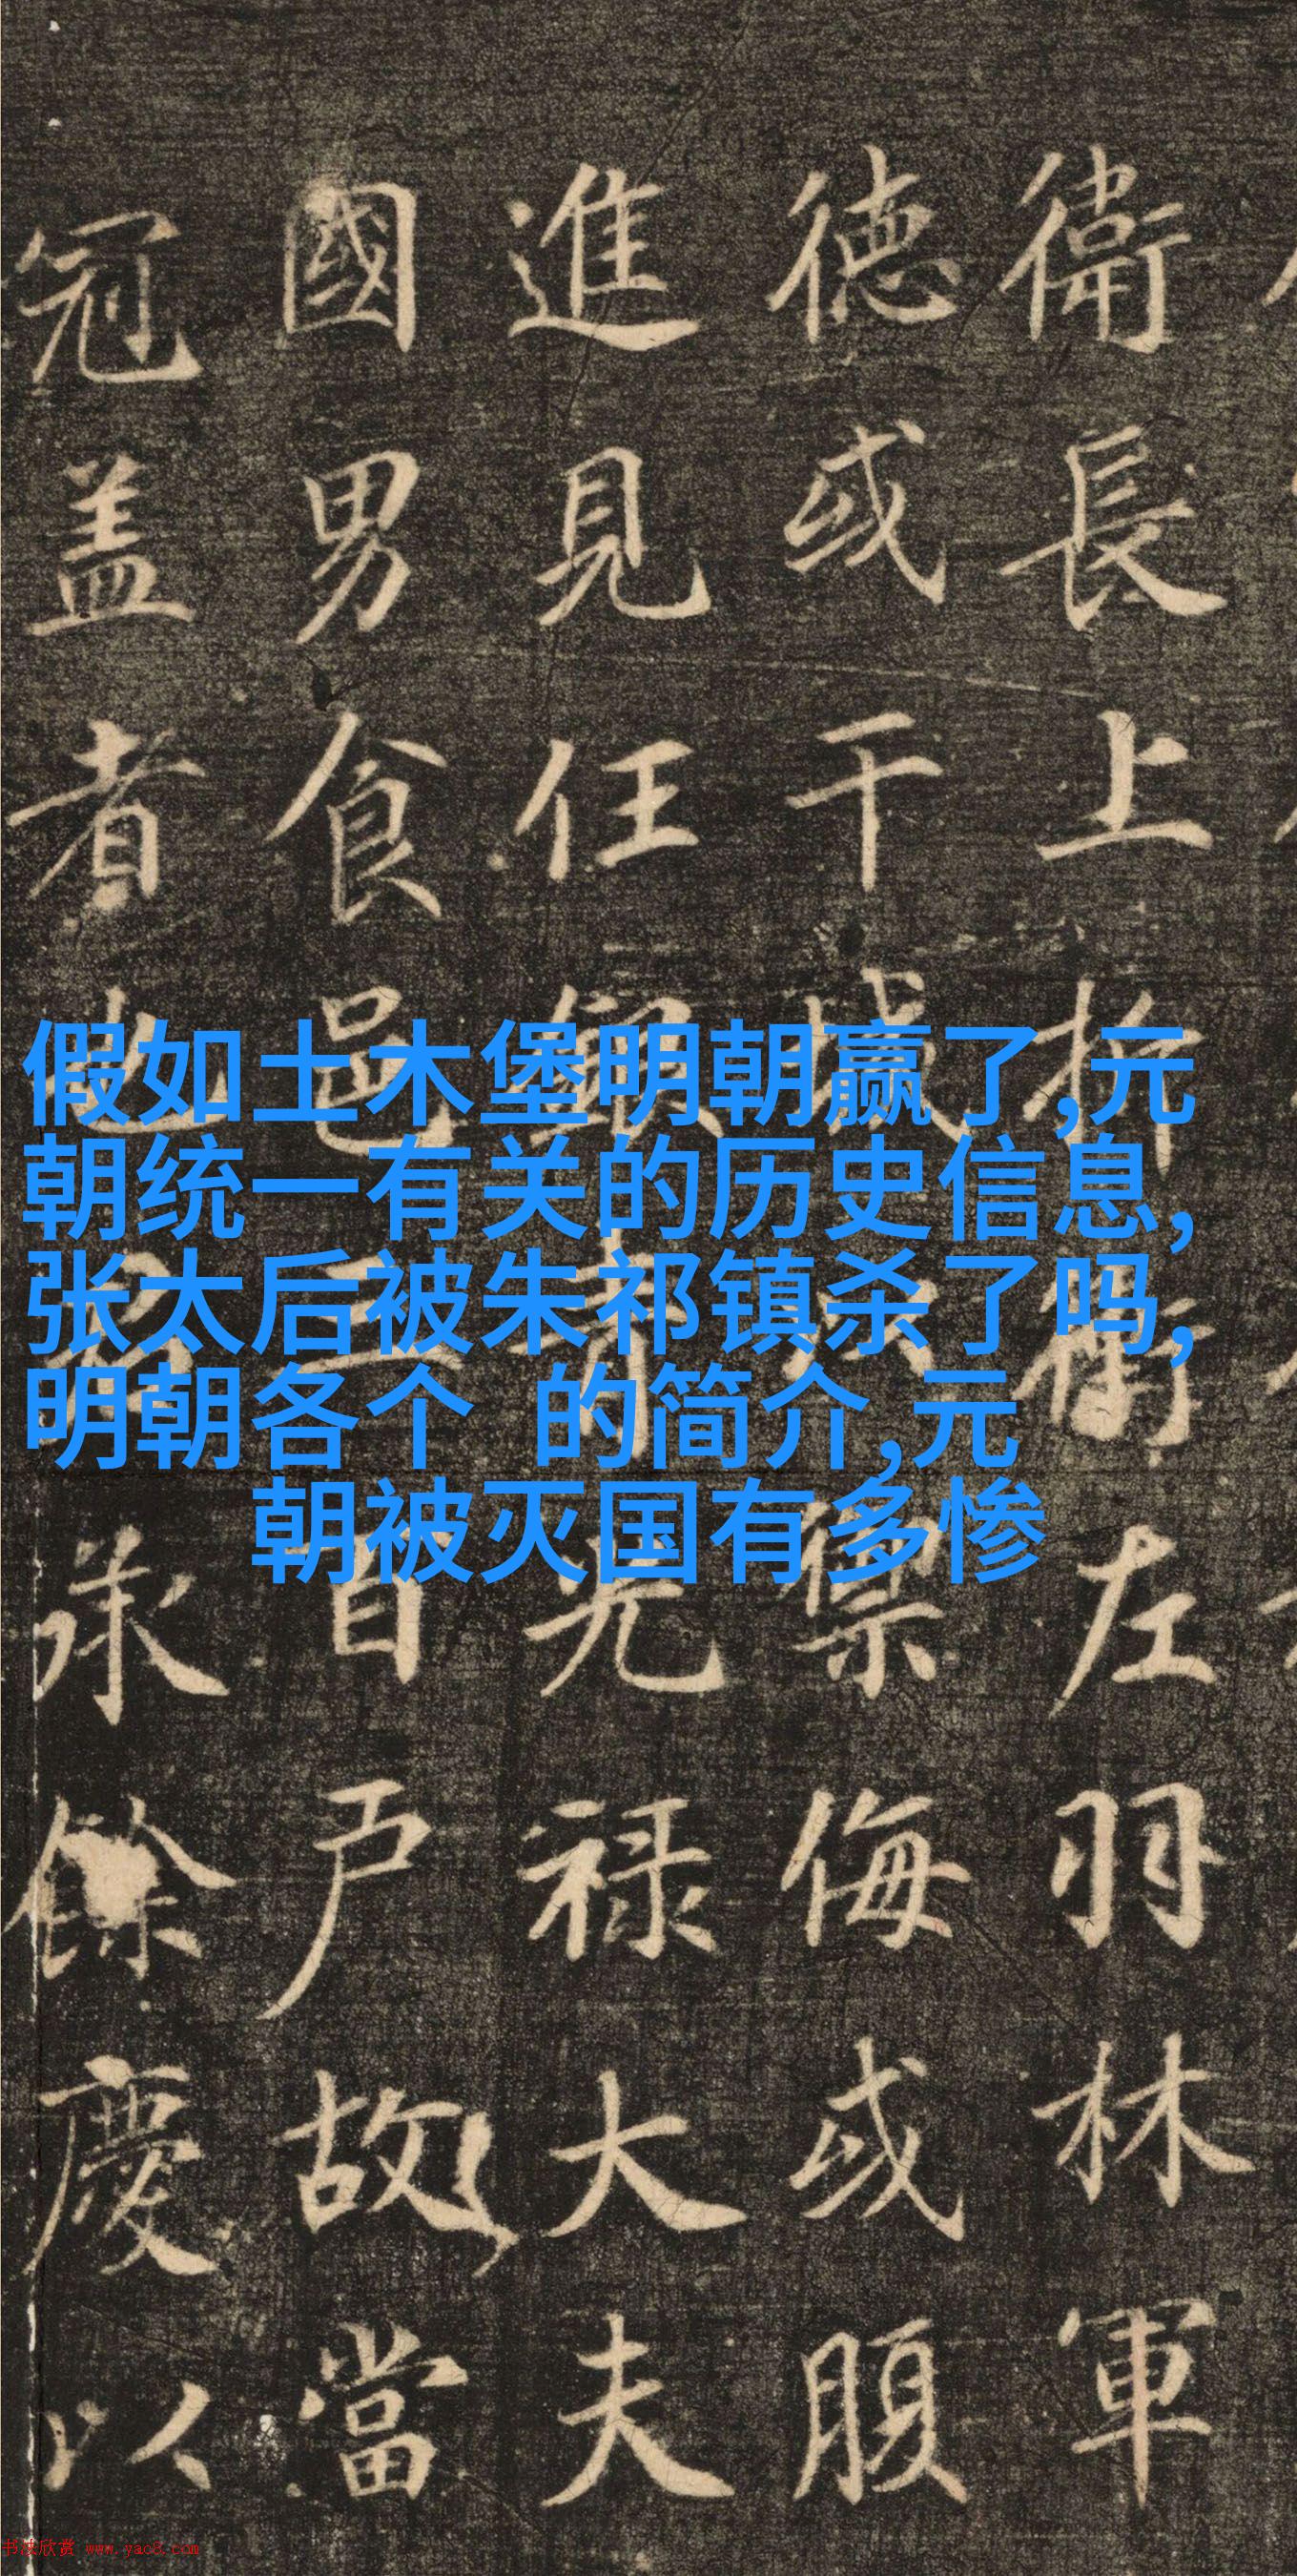 衛長上折衝左羽林軍
德或干城禦侮或腹
進見任銀青光禄大夫
國男食邑三百户故當
冠盖者也承餘慶以
假如土木堡明朝赢了,元
朝统一有关的历史信息,
张太后被朱祁镇杀了吗,
明朝各个 的简介,元
朝被灭国有多惨
书法欣赏 www.yac8.com